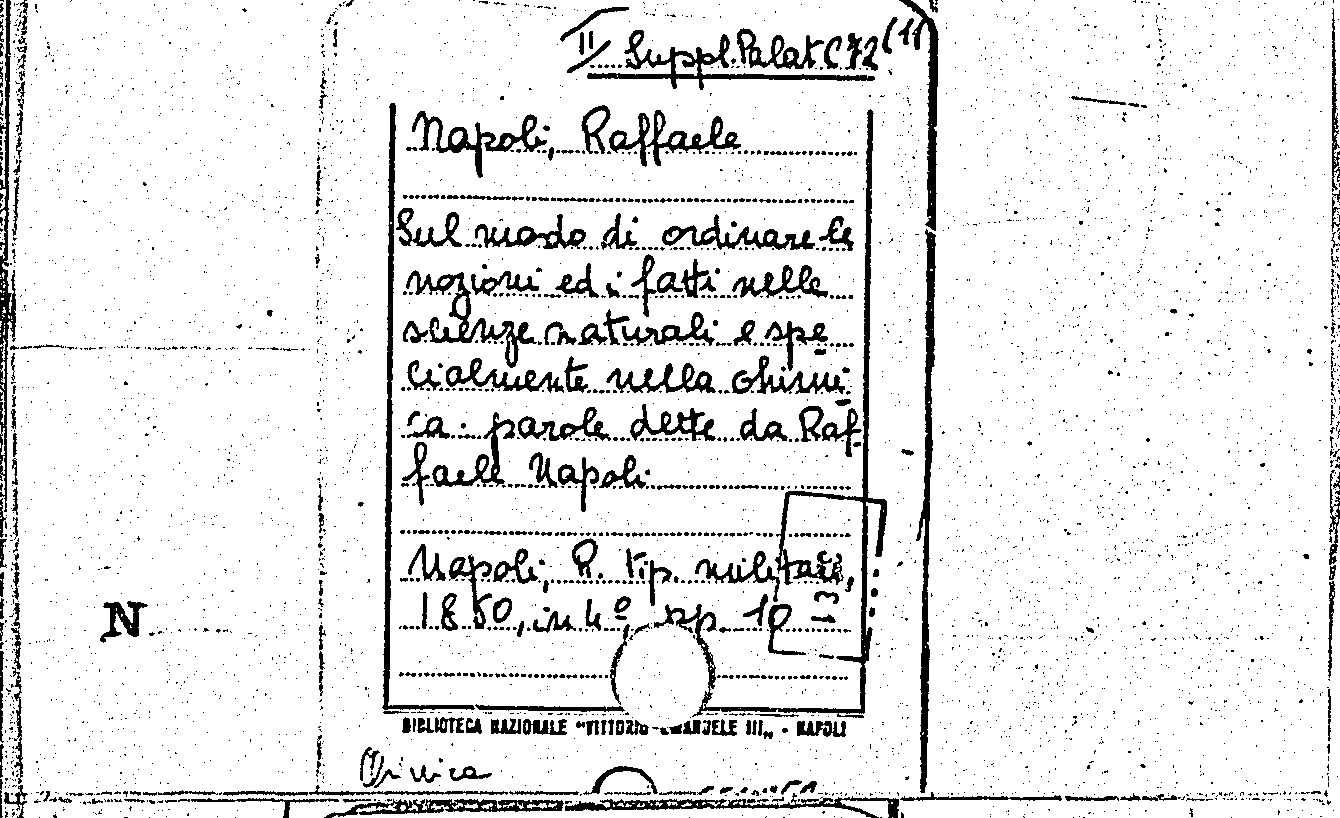 II Suppl. Palat C 72 (11
Napoli, Raffaele
Sul modo di ordinare le
nozioni ed i fatti nelle
scienze naturali e spe
cialmente nella chimi
ca. parole dette da Raf-
faele Napoli.
Napoli, R. tip. militare,
1850, in 4º, pp. 10
N
BIBLIOTECA NAZIONALE "VITTORIO EMANUELE III" - NAPOLI